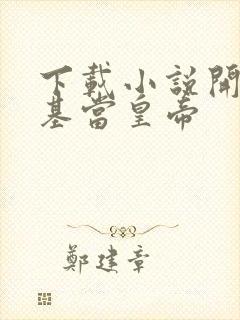 下載小說開
基當皇帝
鄭建章